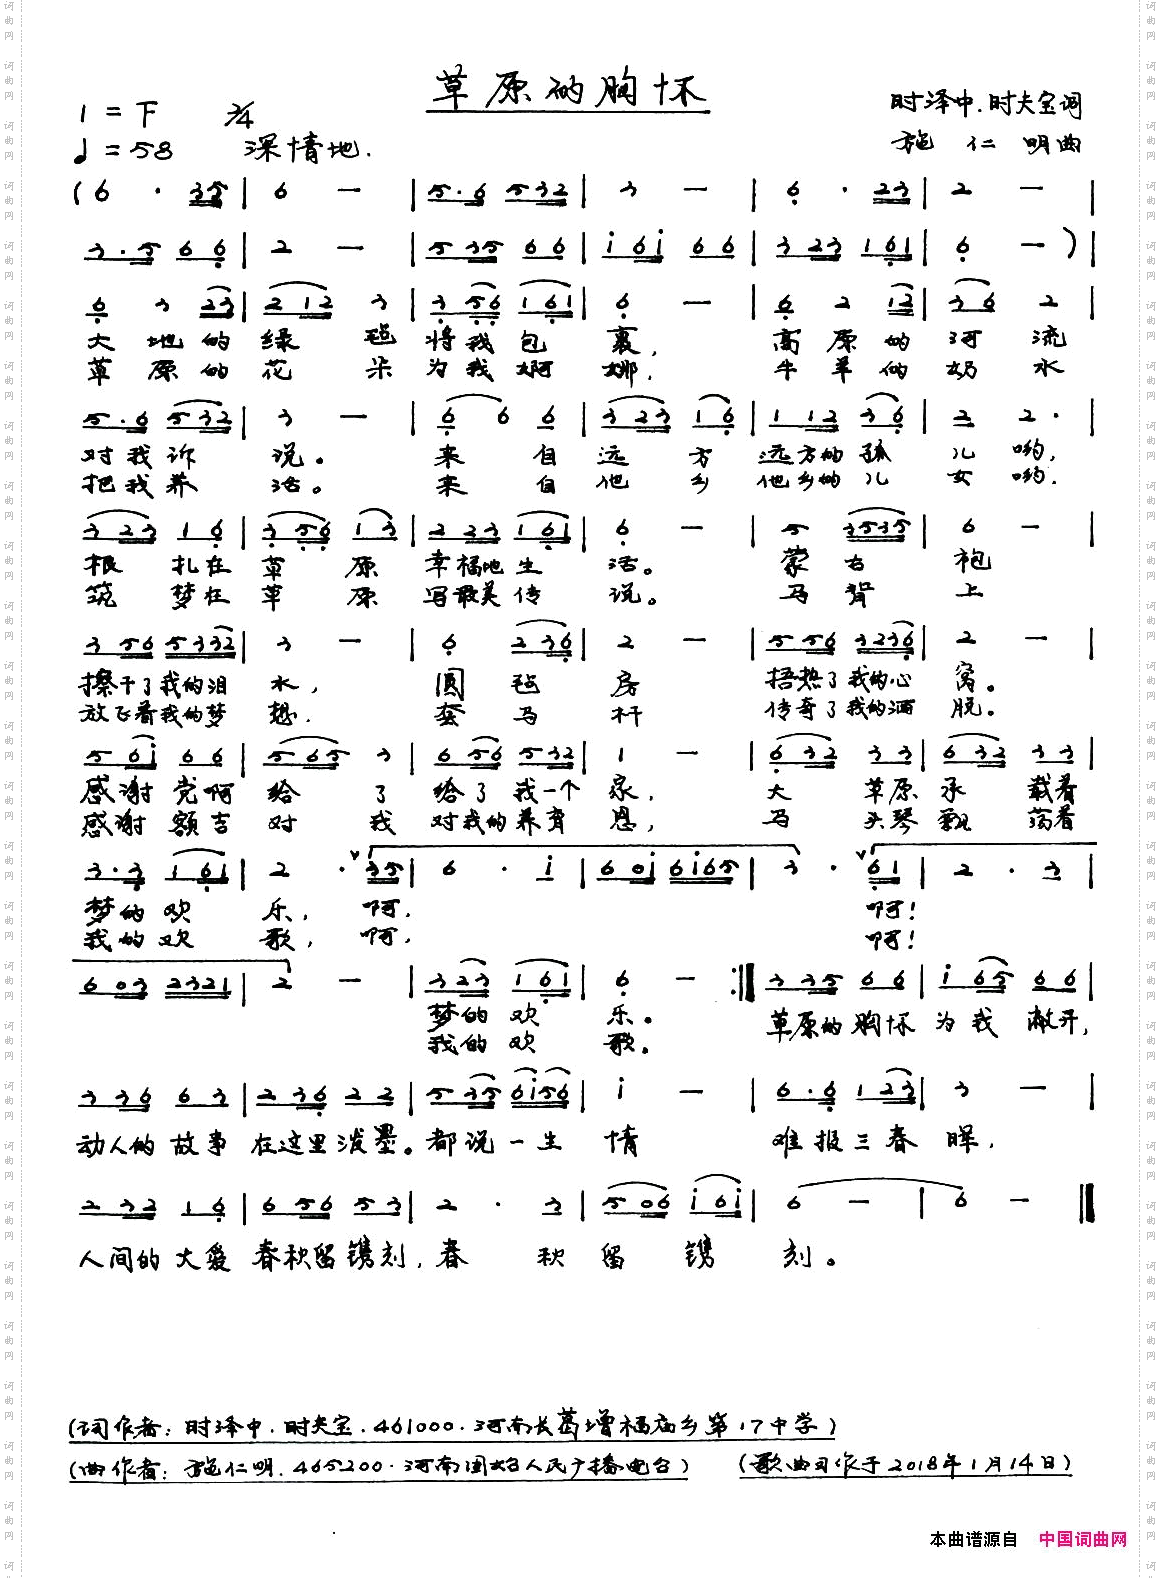 草原的胸怀
1=F 2/4
时泽中.时夫宝词
♩=58 深情地.
施仁明曲
(6 · 35 | 6 — | 5·6 532 | 3 — | 6 · 23 | 2 — |
3·5 66 | 2 — | 535 66 | i6i 66 | 323 161 | 6 — )|
6 3 23 | 212 3 | 356 161 | 6 — | 6 2 12 | 36 2
大地的绿毡将我包裹, 高原的河流
草原的花朵为我婀娜, 牛羊的奶水
5·6 532 | 3 — | 6 6 6 | 323 16 | 112 36 | 2 2· |
对我诉说。 来自远方远方的孤儿哟,
把我养活。 来自他乡他乡的儿女哟.
323 16 | 356 13 | 223 161 | 6 — | 5 3535 | 6 — |
根扎在草原幸福地生活。 蒙古袍
筑梦在草原写最美传说。 马背上
356 5332 | 3 — | 6 236 | 2 — | 556 3236 | 2 — |
擦干了我的泪水, 圆毡房 捂热了我的心窝。
放飞着我的梦想. 套马杆 传奇了我的洒脱。
56i 66 | 565 3 | 656 532 | 1 — | 632 33 | 632 33 |
感谢党啊给了给了我一个家, 大草原承载着
感谢额吉对我对我的养育恩, 马头琴飘荡着
3·3 161 | 2 · 35 | 6 · i | 60i 6i65 | 3 · 61 | 2 · 3 |
梦的欢乐, 啊, 啊!
我的欢歌, 啊, 啊!
603 2321 | 2 — | 323 161 | 6 — :‖ 335 66 | i65 66 |
梦的欢乐。 草原的胸怀为我敞开,
我的欢歌。
336 63 | 236 22 | 535 6i56 | i — | 6·6 123 | 3 — |
动人的故事在这里泼墨。都说一生情 难报三春晖,
232 16 | 656 53 | 2 · 3 | 506 i6i | 6 — | 6 — ‖
人间的大爱春秋留镌刻,春秋留镌刻。
(词作者:时泽中.时夫宝.461000.河南长葛增福庙乡第17中学)
(曲作者:施仁明.465200.河南固始人民广播电台) (歌曲习作于2018年1月14日)
本曲谱源自 中国词曲网